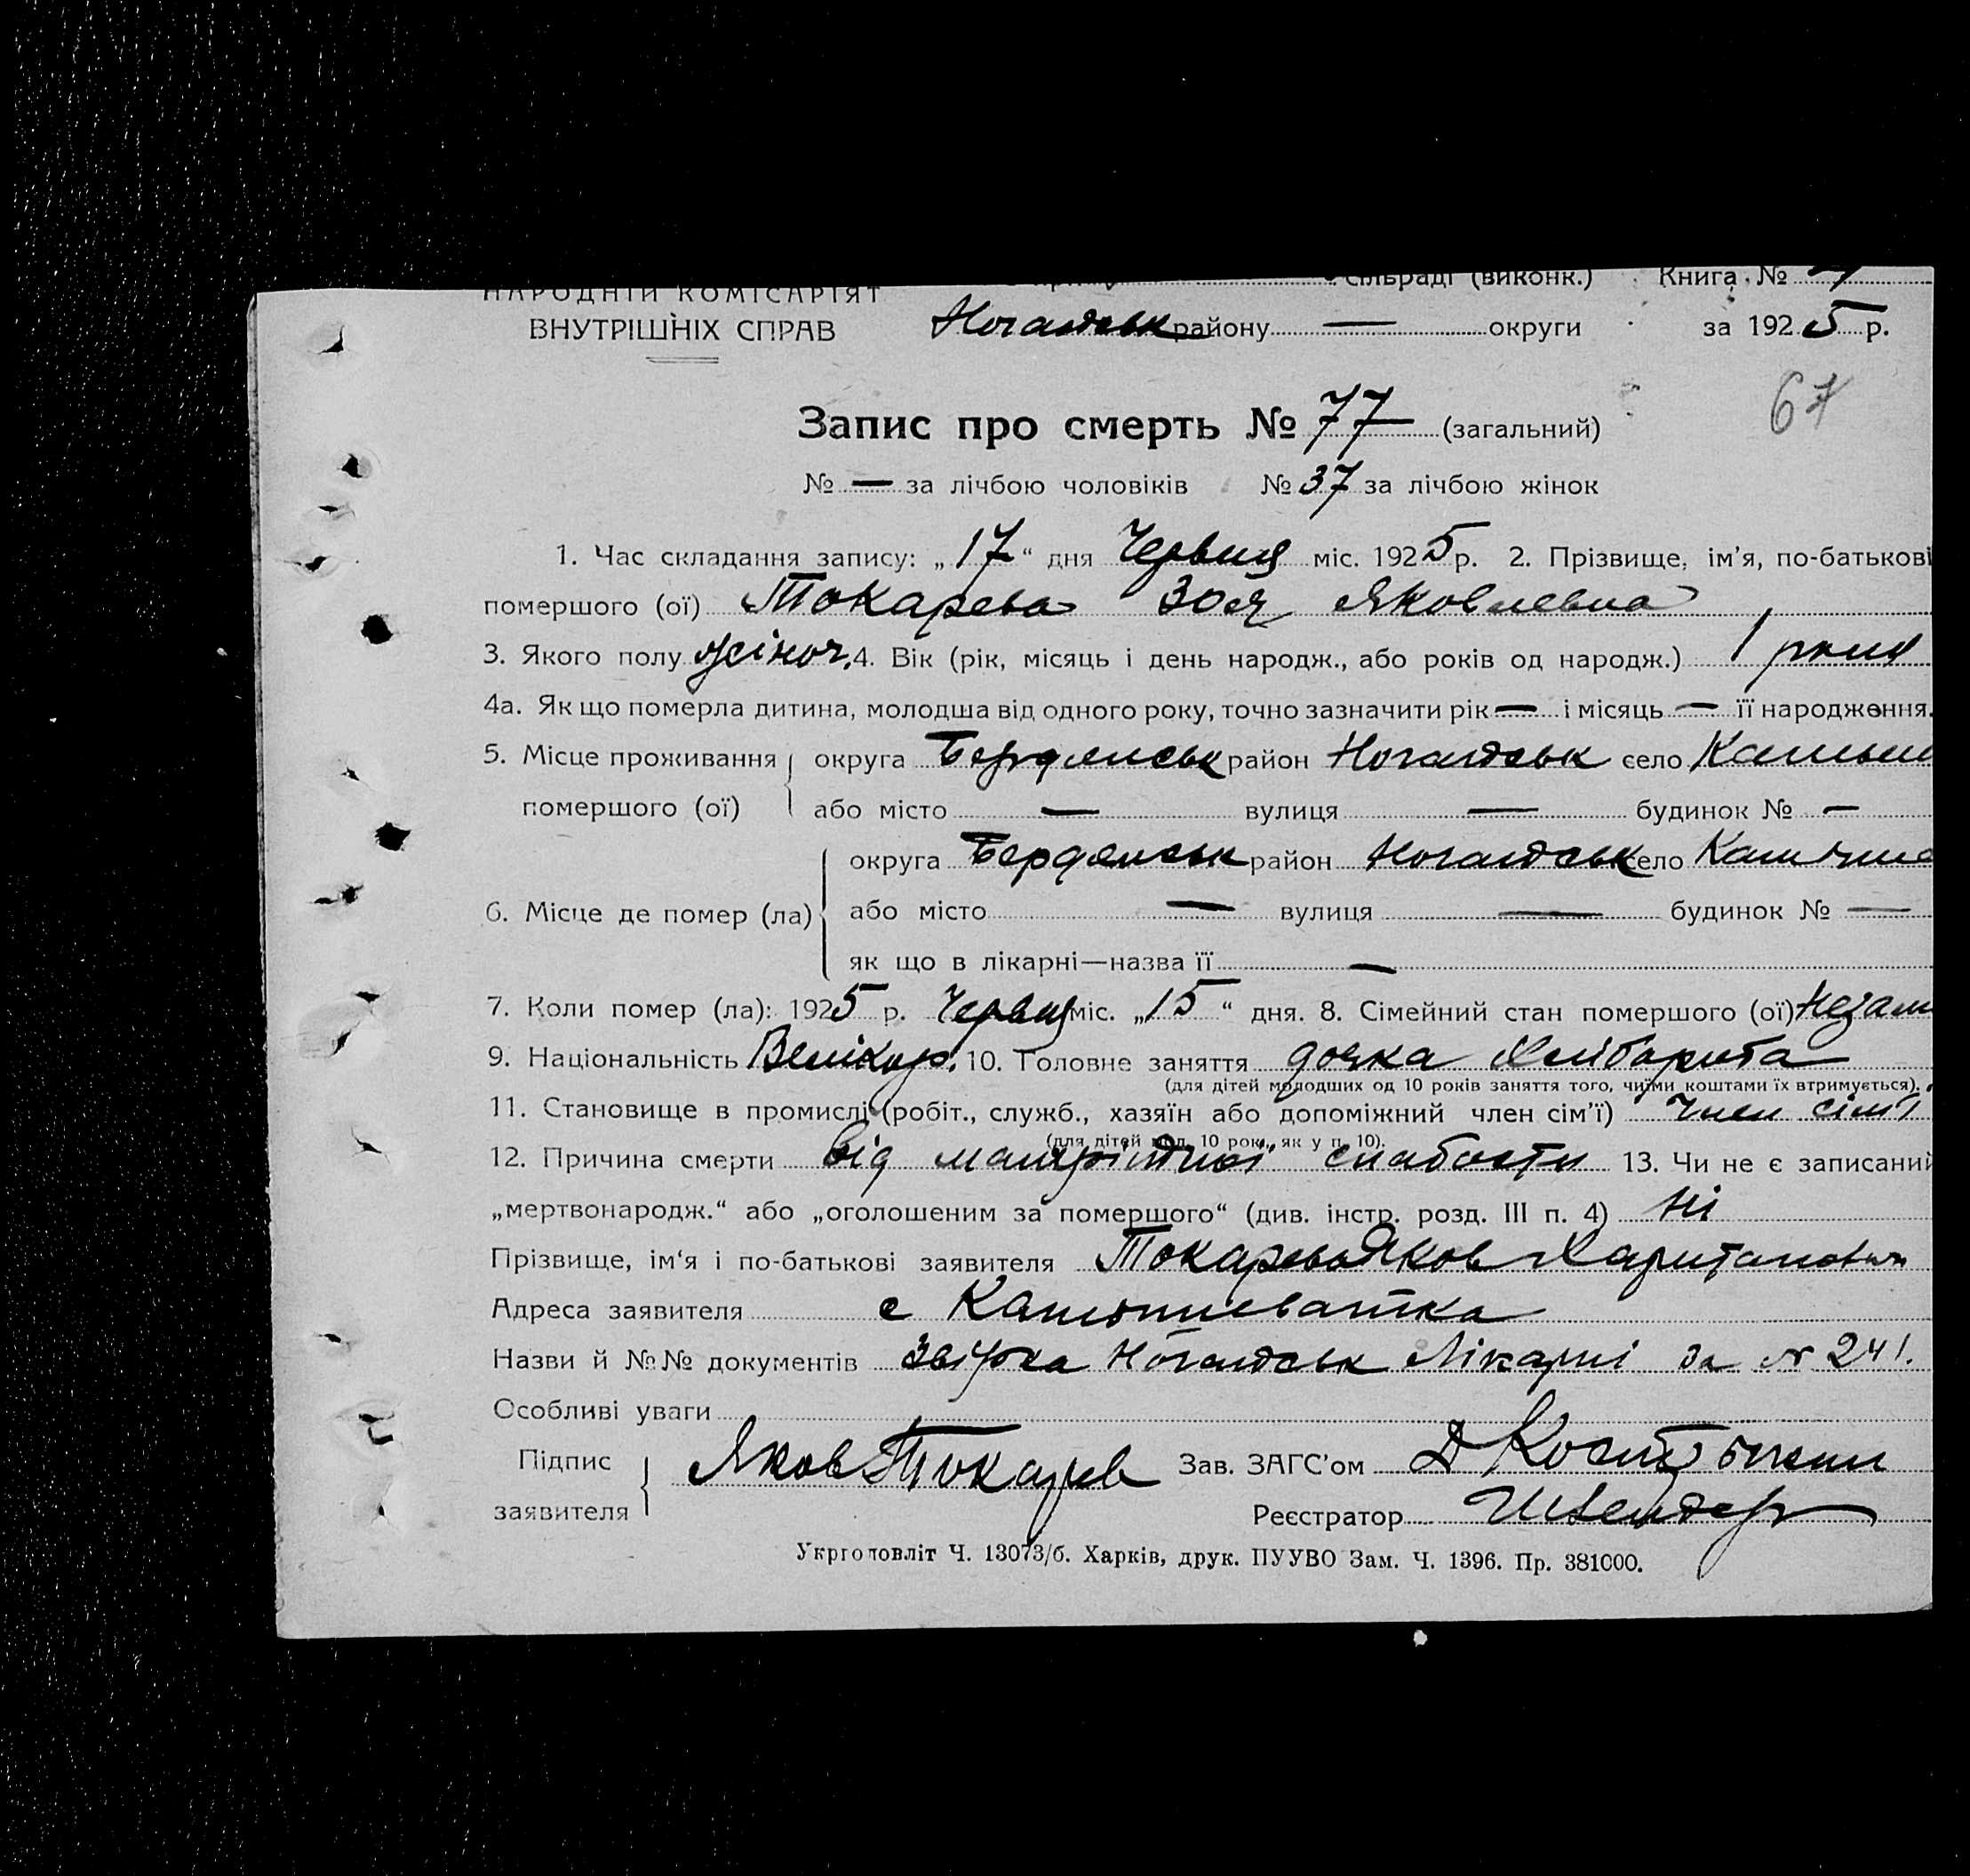 НАРОДНІЙ КОМІСАРІЯТ сільраді (виконк.) Книга №
ВНУТРІШНІХ СПРАВ Ногайськ району — округи за 1925 р.
67
Запис про смерть № 77 (загальний)
№ — за лічбою чоловіків № 37 за лічбою жінок
1. Час складання запису: „17“ дня Червця міс. 1925 р. 2. Прізвище, ім’я, по-батькові
помершого (ої) Токарева Зоя Яковлевна
3. Якого полу жіноч. 4. Вік (рік, місяць і день народж., або років од народж.) 1 року
4а. Як що померла дитина, молодша від одного року, точно зазначити рік — і місяць — її народження.
5. Місце проживання округа Бердянськ район Ногайськ село
помершого (ої) або місто — вулиця — будинок № —
округа Бердянськ район Ногайськ село
6. Місце де помер (ла) або місто — вулиця — будинок № —
як що в лікарні—назва її —
7. Коли помер (ла): 1925 р. Червця міс. „15“ дня. 8. Сімейний стан помершого (ої) Незам
9. Національність Велікор. 10. Головне заняття дочка Хлібороба
(для дітей молодших од 10 років заняття того, чиїми коштами їх втримується).
11. Становище в промислі (робіт., служб., хазяїн або допоміжний член сім’ї) Член сім’ї
(для дітей мол. 10 рок., як у п. 10).
12. Причина смерти Від слабости 13. Чи не є записаний
„мертвонародж.“ або „оголошеним за помершого“ (див. інстр. розд. III п. 4) Ні
Прізвище, ім‘я і по-батькові заявителя Токарев Яков Харитонович
Адреса заявителя с
Назви й №№ документів Звірка Ногайськ Лікарні За № 241.
Особливі уваги
Підпис Яков Токарев Зав. ЗАГС’ом
заявителя Реєстратор
Укрголовліт Ч. 13073/б. Харків, друк. ПУУВО Зам. Ч. 1396. Пр. 381000.